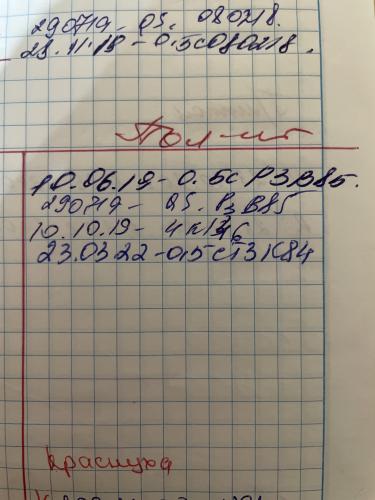 290719 - 0.5. 080218.
23.11.18 - 0.5 с 080218.
Пол-ит
10.06.19 - 0.5с Р3В85.
290719 - 0.5. Р3В85
10.10.19 -
23.03.22 - 0,5 с 13К84
Краснуха